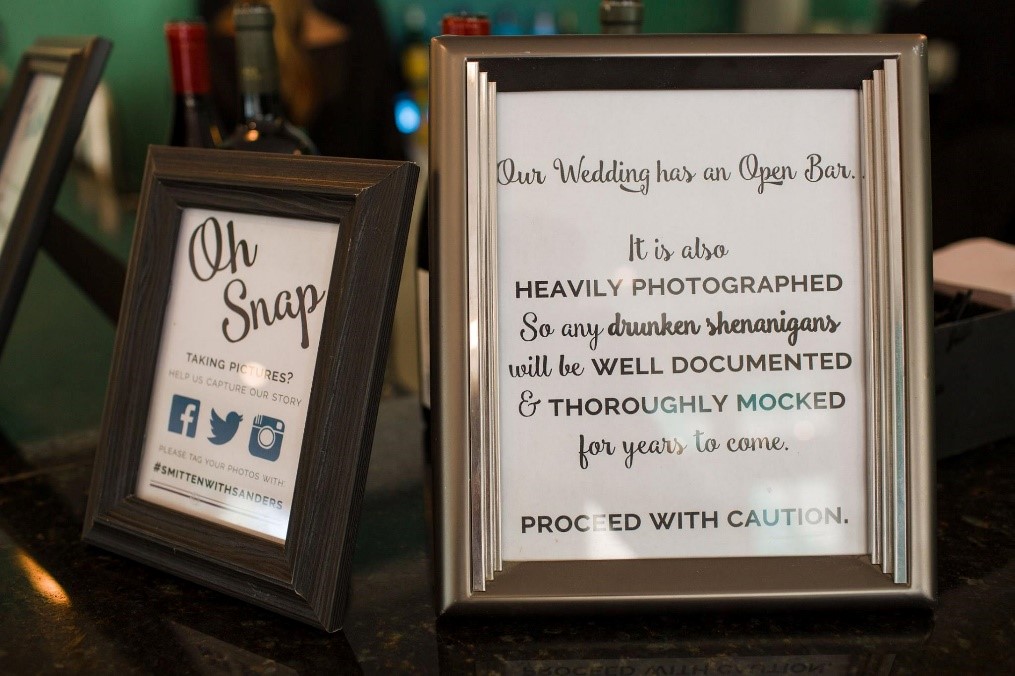 Oh
Snap
TAKING PICTURES?
HELP US CAPTURE OUR STORY
PLEASE TAG YOUR PHOTOS WITH
#SMITTENWITHSANDERS
Our Wedding has an Open Bar.
It is also
HEAVILY PHOTOGRAPHED
So any drunken shenanigans
will be WELL DOCUMENTED
& THOROUGHLY MOCKED
for years to come.
PROCEED WITH CAUTION.